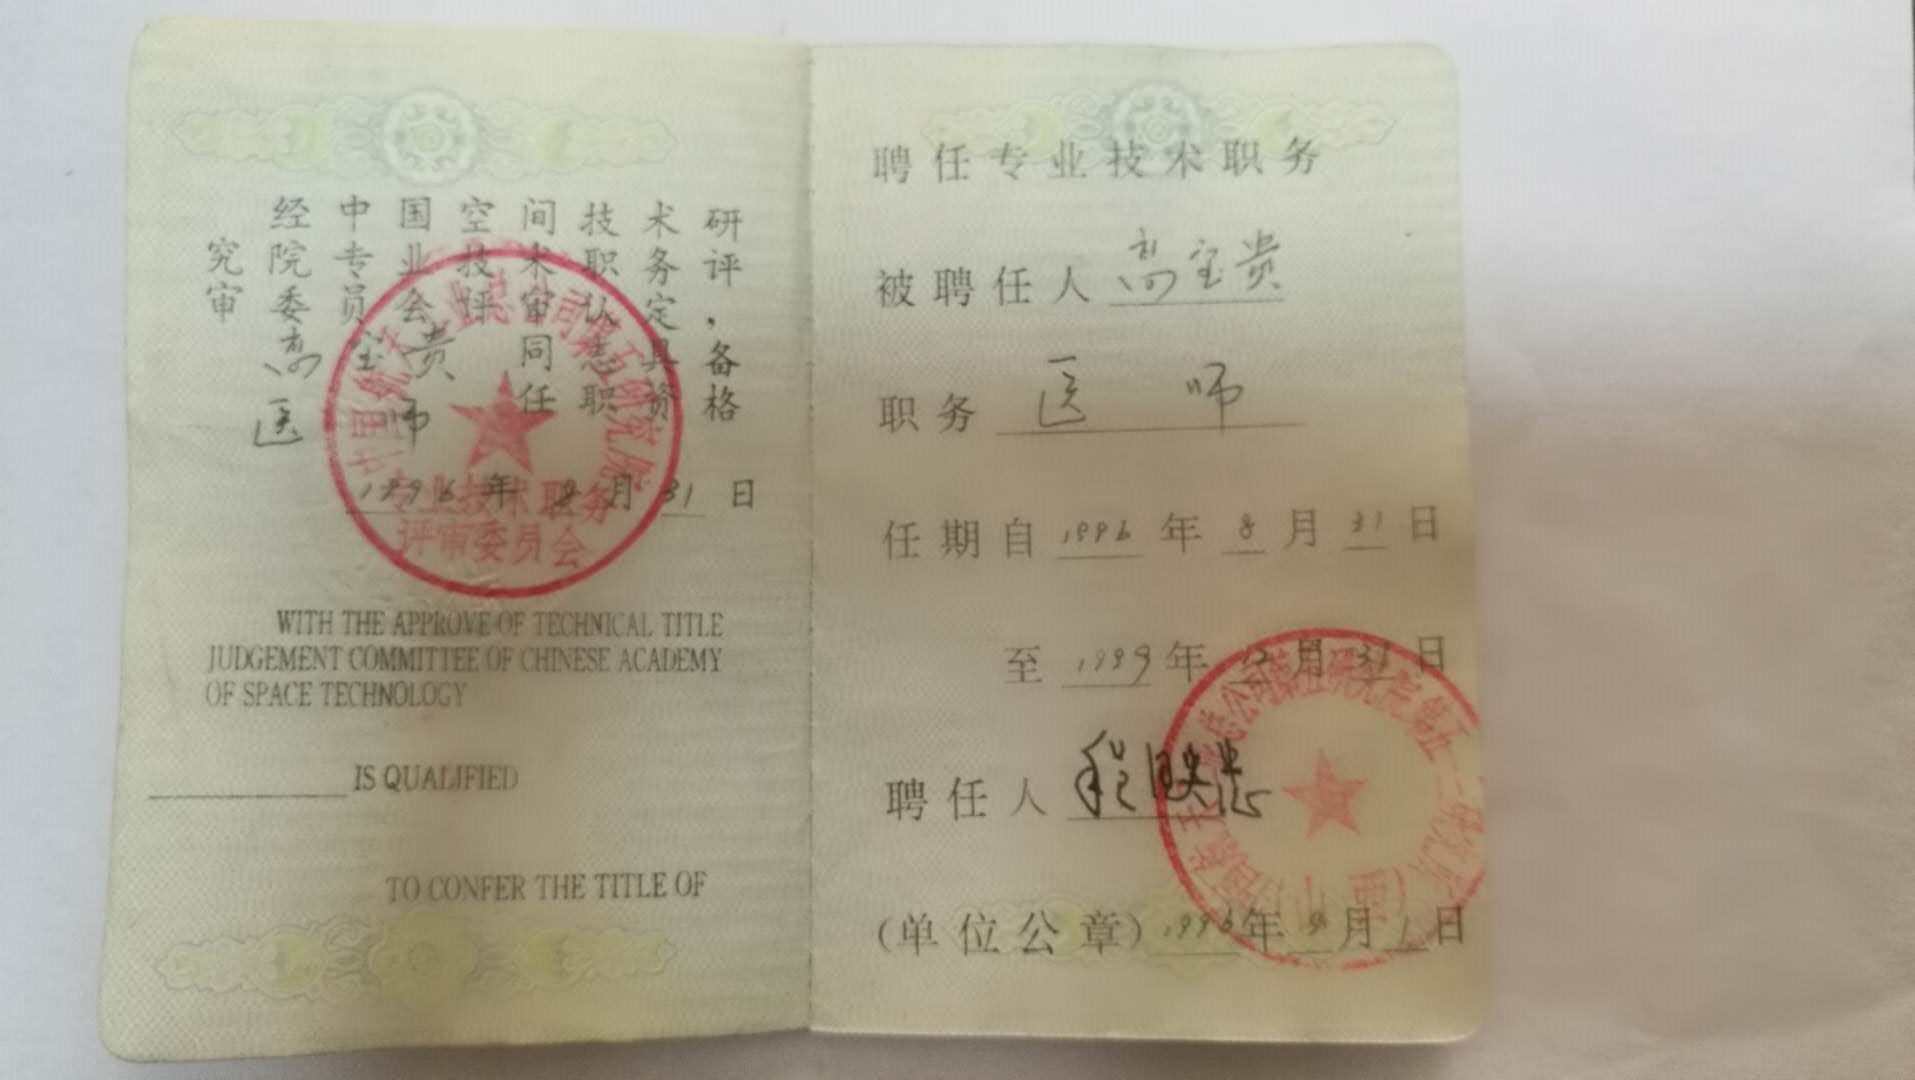 经中国空间技术研
究院专业技术职务评
审委员会评审认定,
高宝贵同志具备
医师任职资格
1996年8月31日
中国航天工业总公司第五研究院
专业技术职务
评审委员会
WITH THE APPROVE OF TECHNICAL TITLE
JUDGEMENT COMMITTEE OF CHINESE ACADEMY
OF SPACE TECHNOLOGY
IS QUALIFIED
TO CONFER THE TITLE OF
聘任专业技术职务
被聘任人 高宝贵
职务 医师
任期自 1996年8月31日
至 1999年 月31日
聘任人
(单位公章) 1996年9月1日